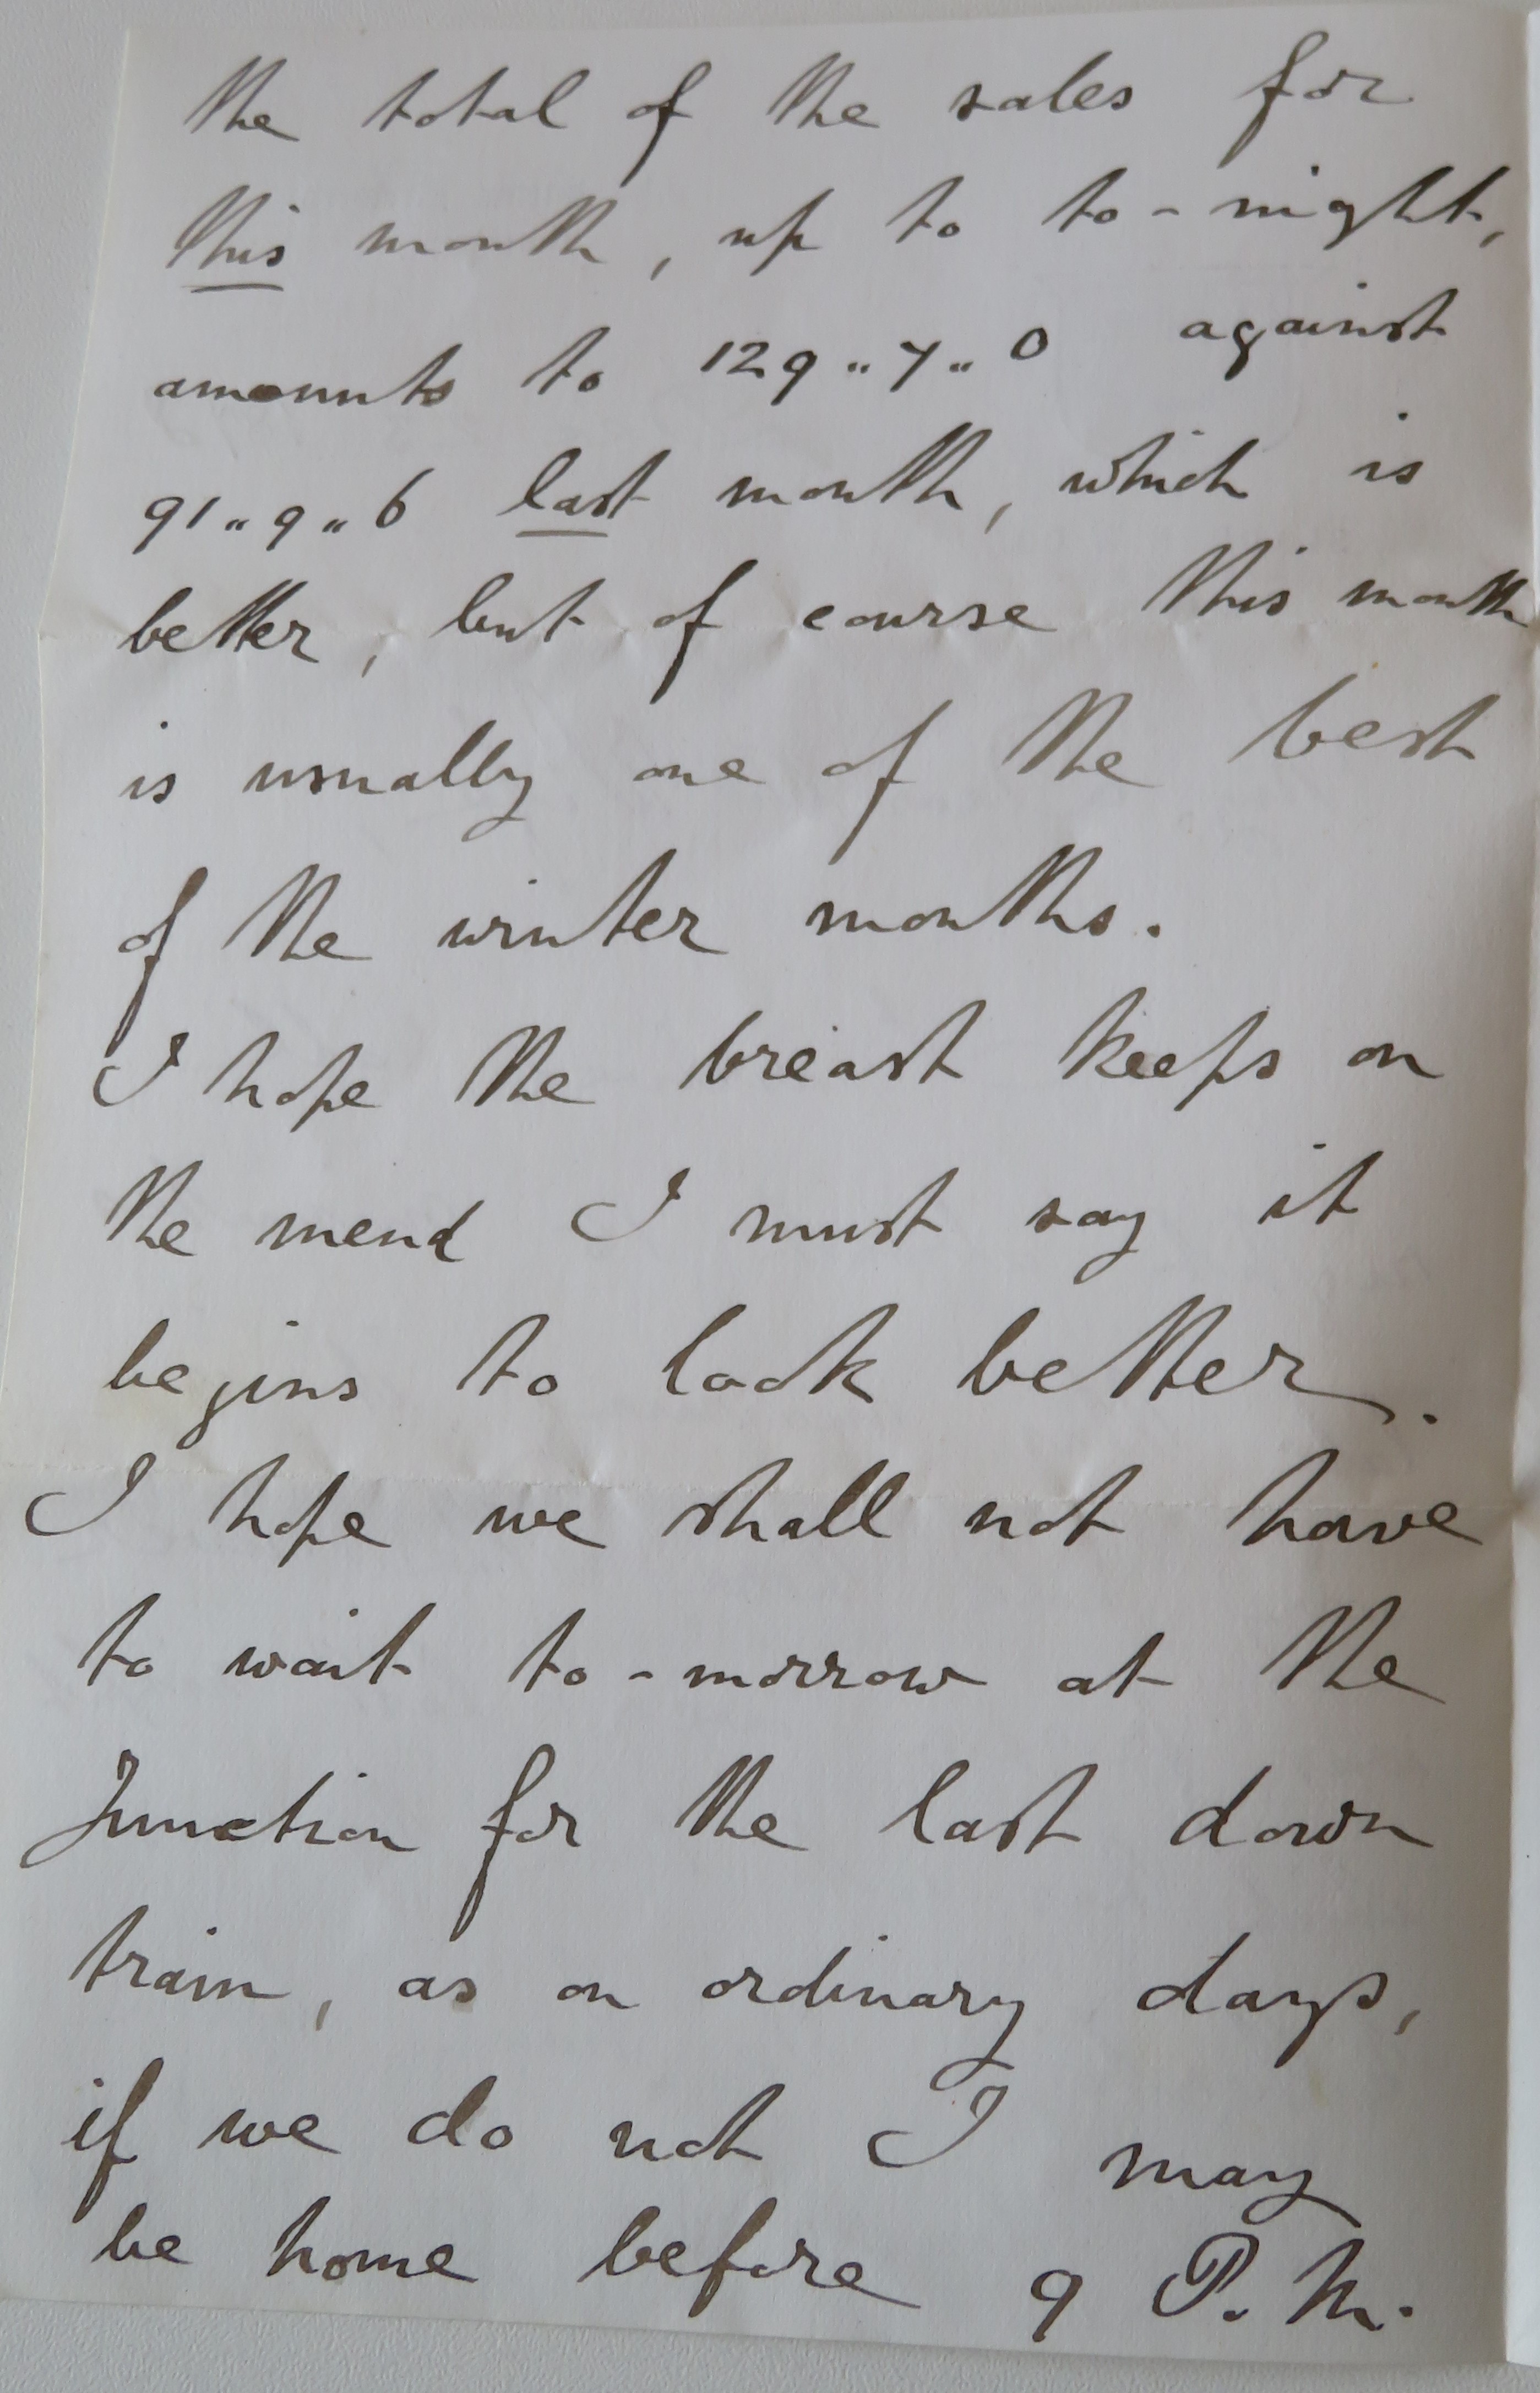 the total of the sales for
this month, up to to-night,
amounts to 129„7„0 against
91„9„6 last month, which is
better, but of course this month
is usually one of the best
of the winter months.
I hope the breast keeps on
the mend I must say it
begins to look better.
I hope we shall not have
to wait to-morrow at the
Junction for the last down
train, as on ordinary days,
if we do not I may
be home before 9 P.M.